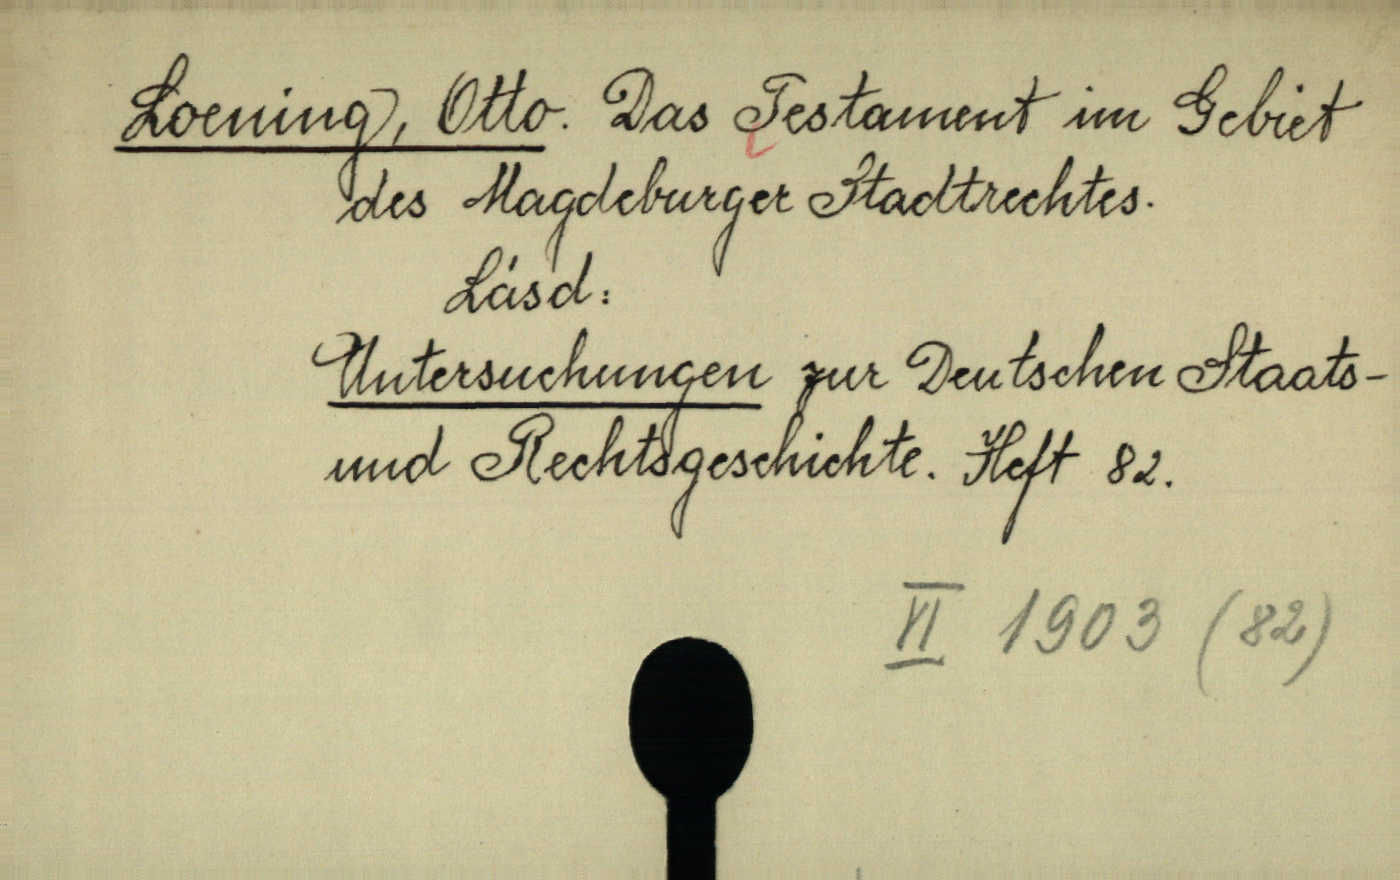 Loening, Otto. Das Testament im Gebiet
des Magdeburger Stadtrechtes.
Lásd:
Untersuchungen zur Deutschen Staats-
und Rechtsgeschichte. Heft 82.
VI 1903 (82)